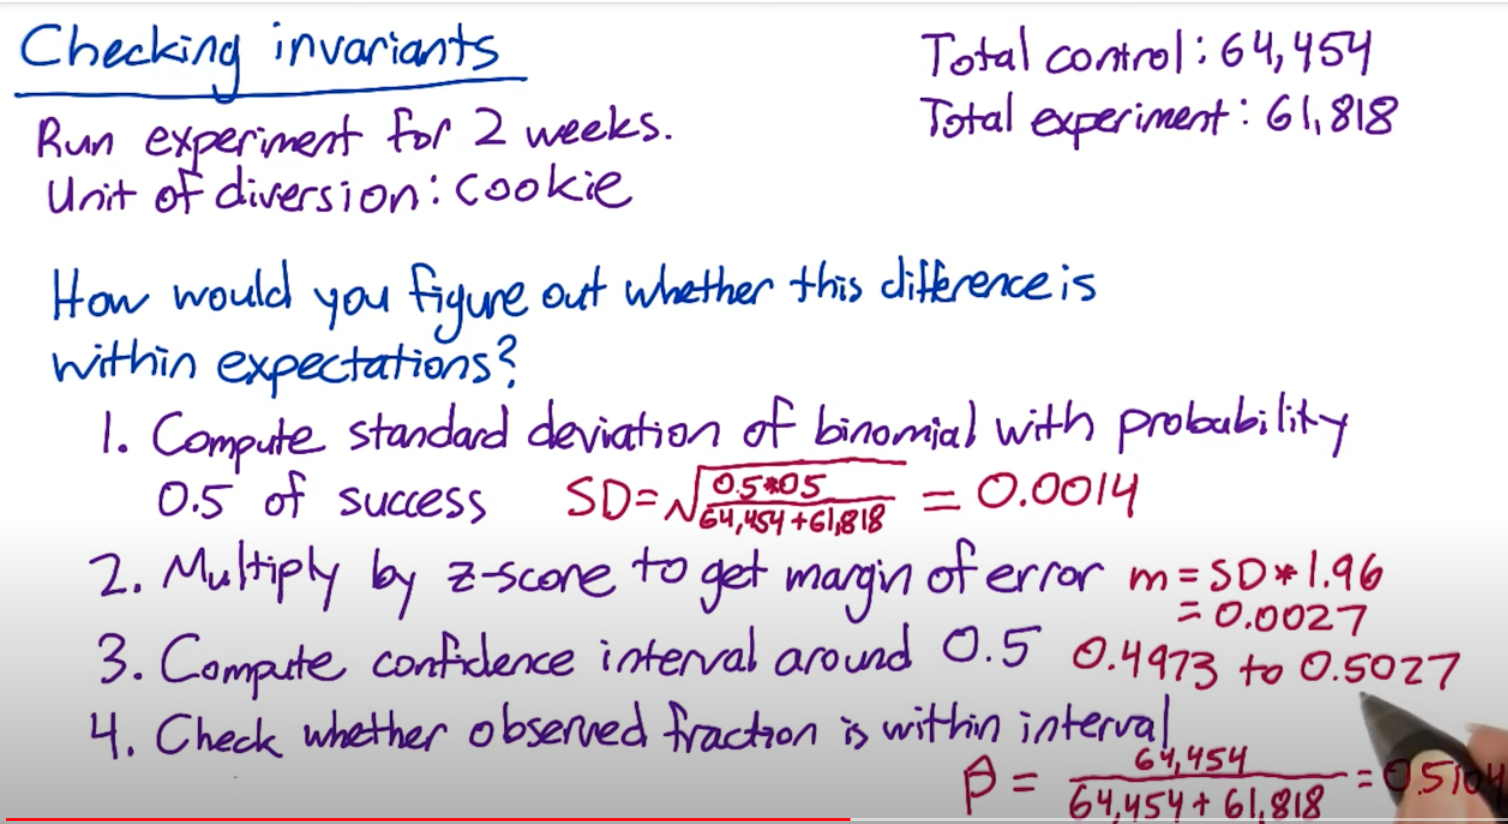 Checking invariants
Total control: 64,454
Total experiment: 61,818
Run experiment for 2 weeks.
Unit of diversion: cookie
How would you figure out whether this difference is
within expectations?
1. Compute standard deviation of binomial with probability
0.5 of success SD=√(0.5*05/64,454+61,818) = 0.0014
2. Multiply by z-score to get margin of error m = SD*1.96
= 0.0027
3. Compute confidence interval around 0.5 0.4973 to 0.5027
4. Check whether observed fraction is within interval
p̂ = 64,454/64,454+61,818 = 0.5104